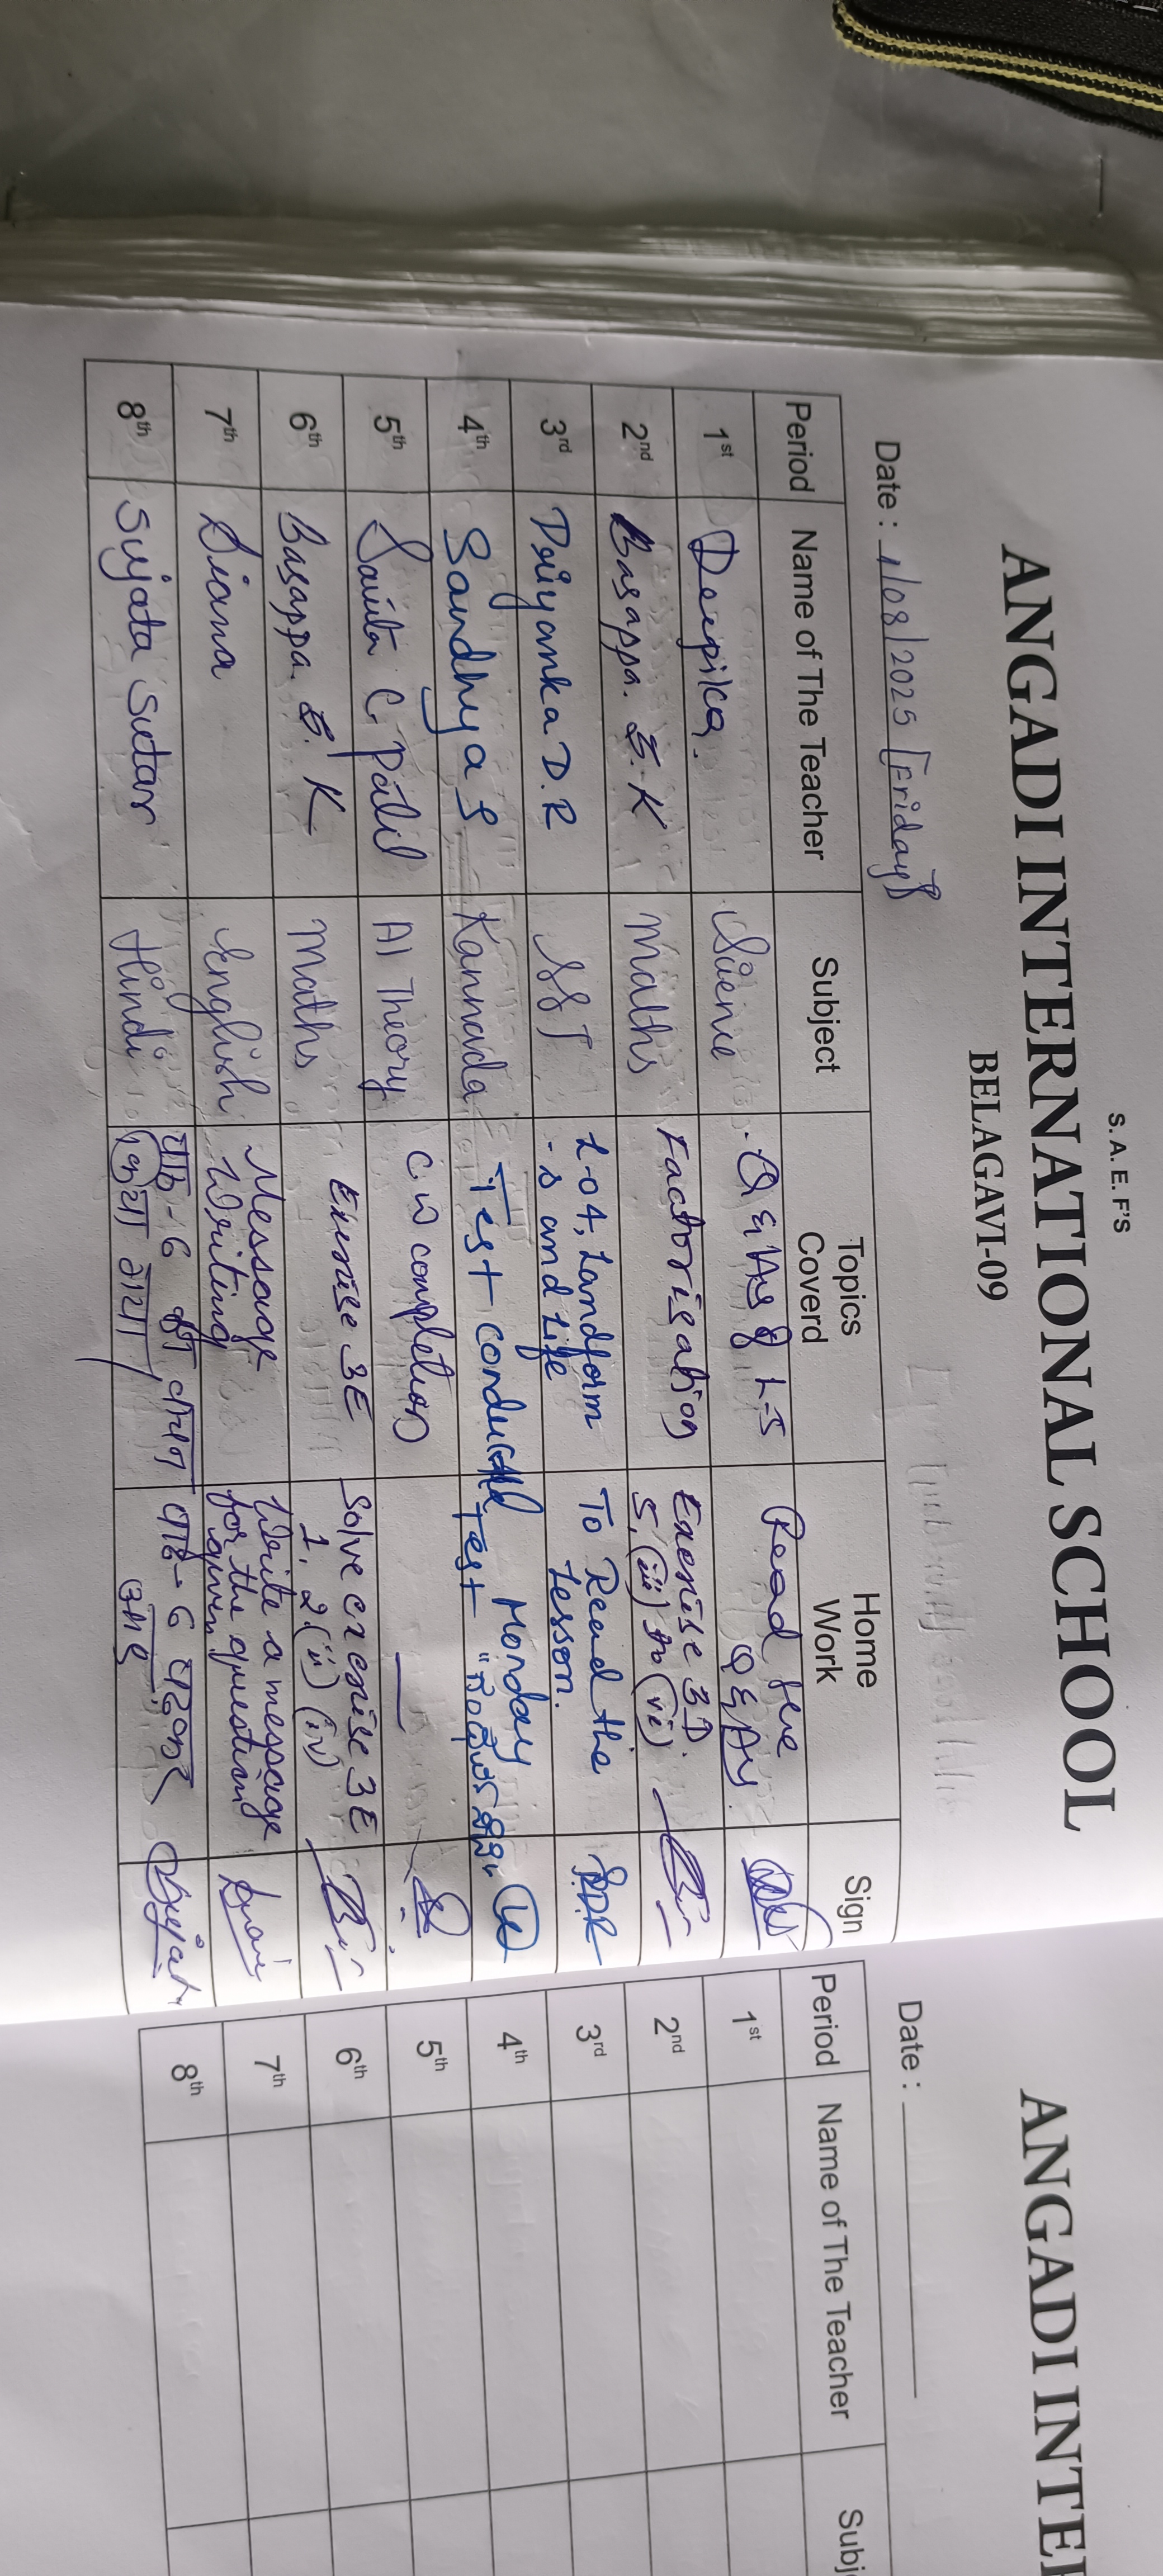 S. A. E. F'S
ANGADI INTERNATIONAL SCHOOL
BELAGAVI-09
Date : 1/08/2025 [Friday]
Period Name of The Teacher Subject Topics Coverd Home Work Sign
1st Deepika. Science Q & As of L-5 Read the Q & As
2nd Basappa. B. K Maths Factorisation Exercise 3D.
5. (iii) to (vi)
3rd Priyanka D. R SST L-04, Landform To Read the PDR
-s and Life Lesson.
4th Sandhya S Kannada Test conducted Monday
Test
5th Savita C. Patil AI Theory C.W completion —
6th Basappa. B. K Maths Exercise 3E Solve exercise 3E
1, 2 (ii) (iv)
7th Diana English Message Write a message
Writing for the question
given
8th Sujata Sutar Hindi पाठ-6 का वाचन पाठ-6 पढ़कर
किया गया।
Date :
ANGADI INTER
Period Name of The Teacher Subj
1st
2nd
3rd
4th
5th
6th
7th
8th